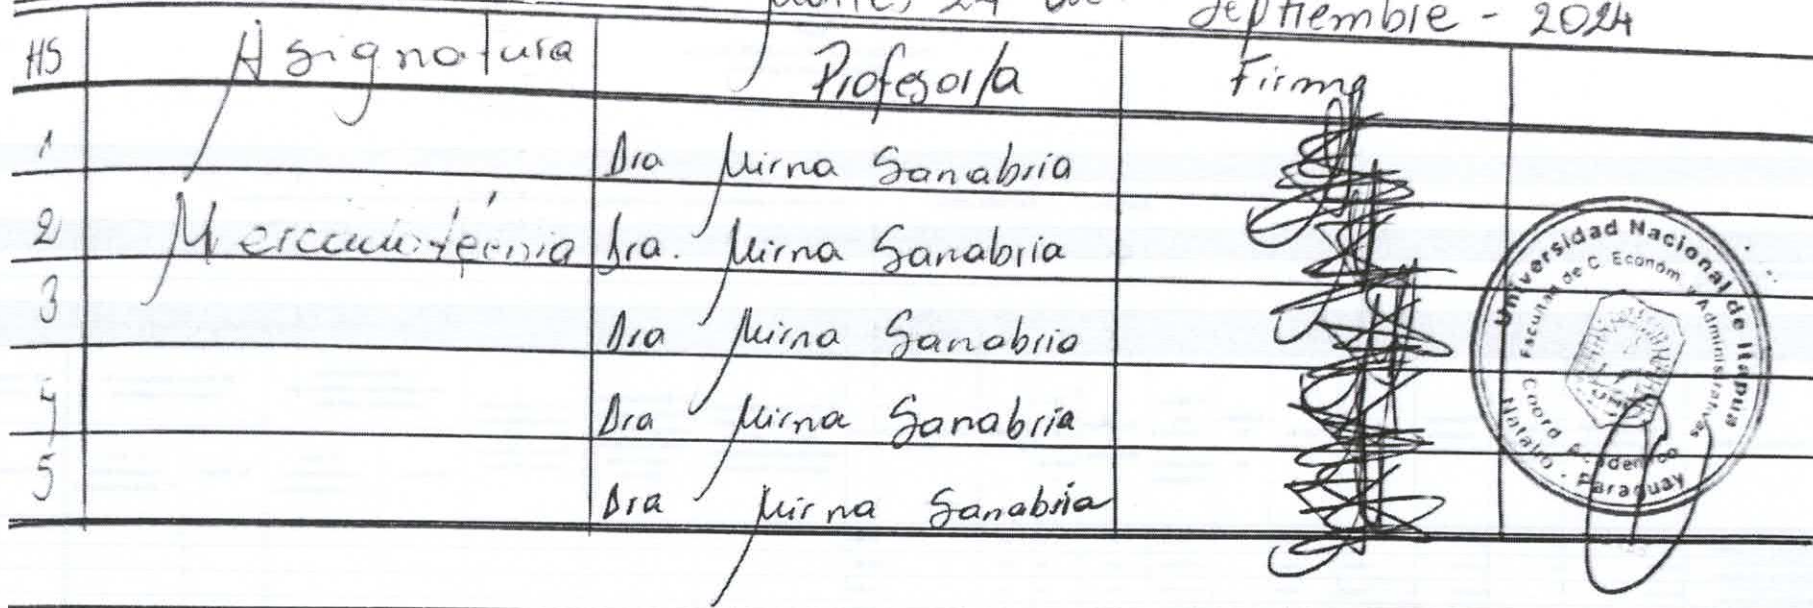 Martes 24 de Septiembre - 2024
HS Asignatura Profesor/a Firma
1 Dra Mirna Sanabria
2 Mercadotecnia Dra. Mirna Sanabria
3 Dra Mirna Sanabria
4 Dra Mirna Sanabria
5 Dra Mirna Sanabria
Universidad Nacional de Itapua
Facultad de C. Económ. y Administrativas
Coord Academico
Natalio - Paraguay